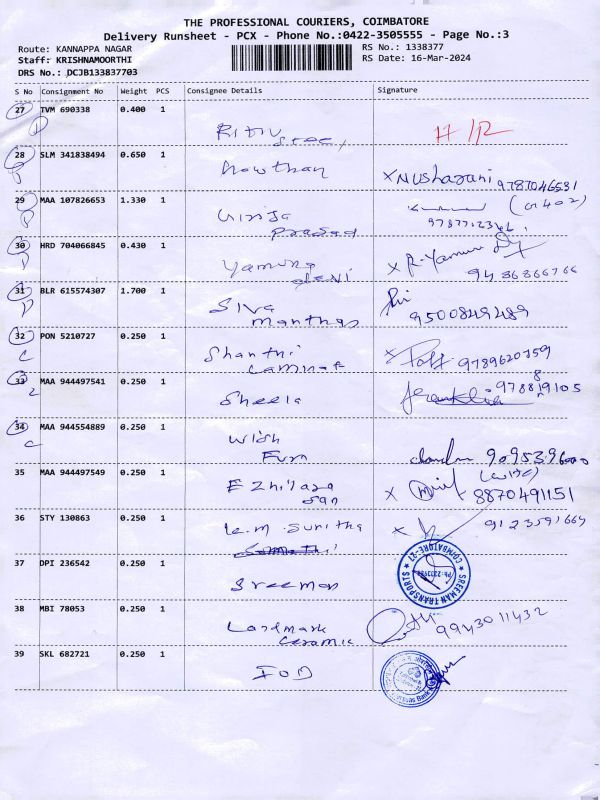 THE PROFESSIONAL COURIERS, COIMBATORE
Delivery Runsheet - PCX - Phone No.:0422-3505555 - Page No.:3
Route: KANNAPPA NAGAR
RS No.: 1338377
Staff: KRISHNAMOORTHI
RS Date: 16-Mar-2024
DRS No.: DCJB133837703
S No Consignment No Weight PCS Consignee Details Signature
27 TVM 690338 0.400 1 Ritu
28 SLM 341838494 0.650 1 Nowthan x Nusharani 9787046531
29 MAA 107826653 1.330 1 Girija
Prasad
30 HRD 704066845 0.430 1 Yamuna
devi
31 BLR 615574307 1.700 1 Siva
Manthra 9500849489
32 PON 5210727 0.250 1 Shanthi 9789620759
33 MAA 944497541 0.250 1 Sheela
34 MAA 944554889 0.250 1 Wish
Furn
35 MAA 944497549 0.250 1 Ezhilara
san x 8870491151
36 STY 130863 0.250 1 K.M. Sunitha x 9123591669
37 DPI 236542 0.250 1 Sreeman
SREEMAN TRANSPORTS COIMBATORE-27
38 MBI 78053 0.250 1 Landmark
Ceramic 9943011432
39 SKL 682721 0.250 1 IOB